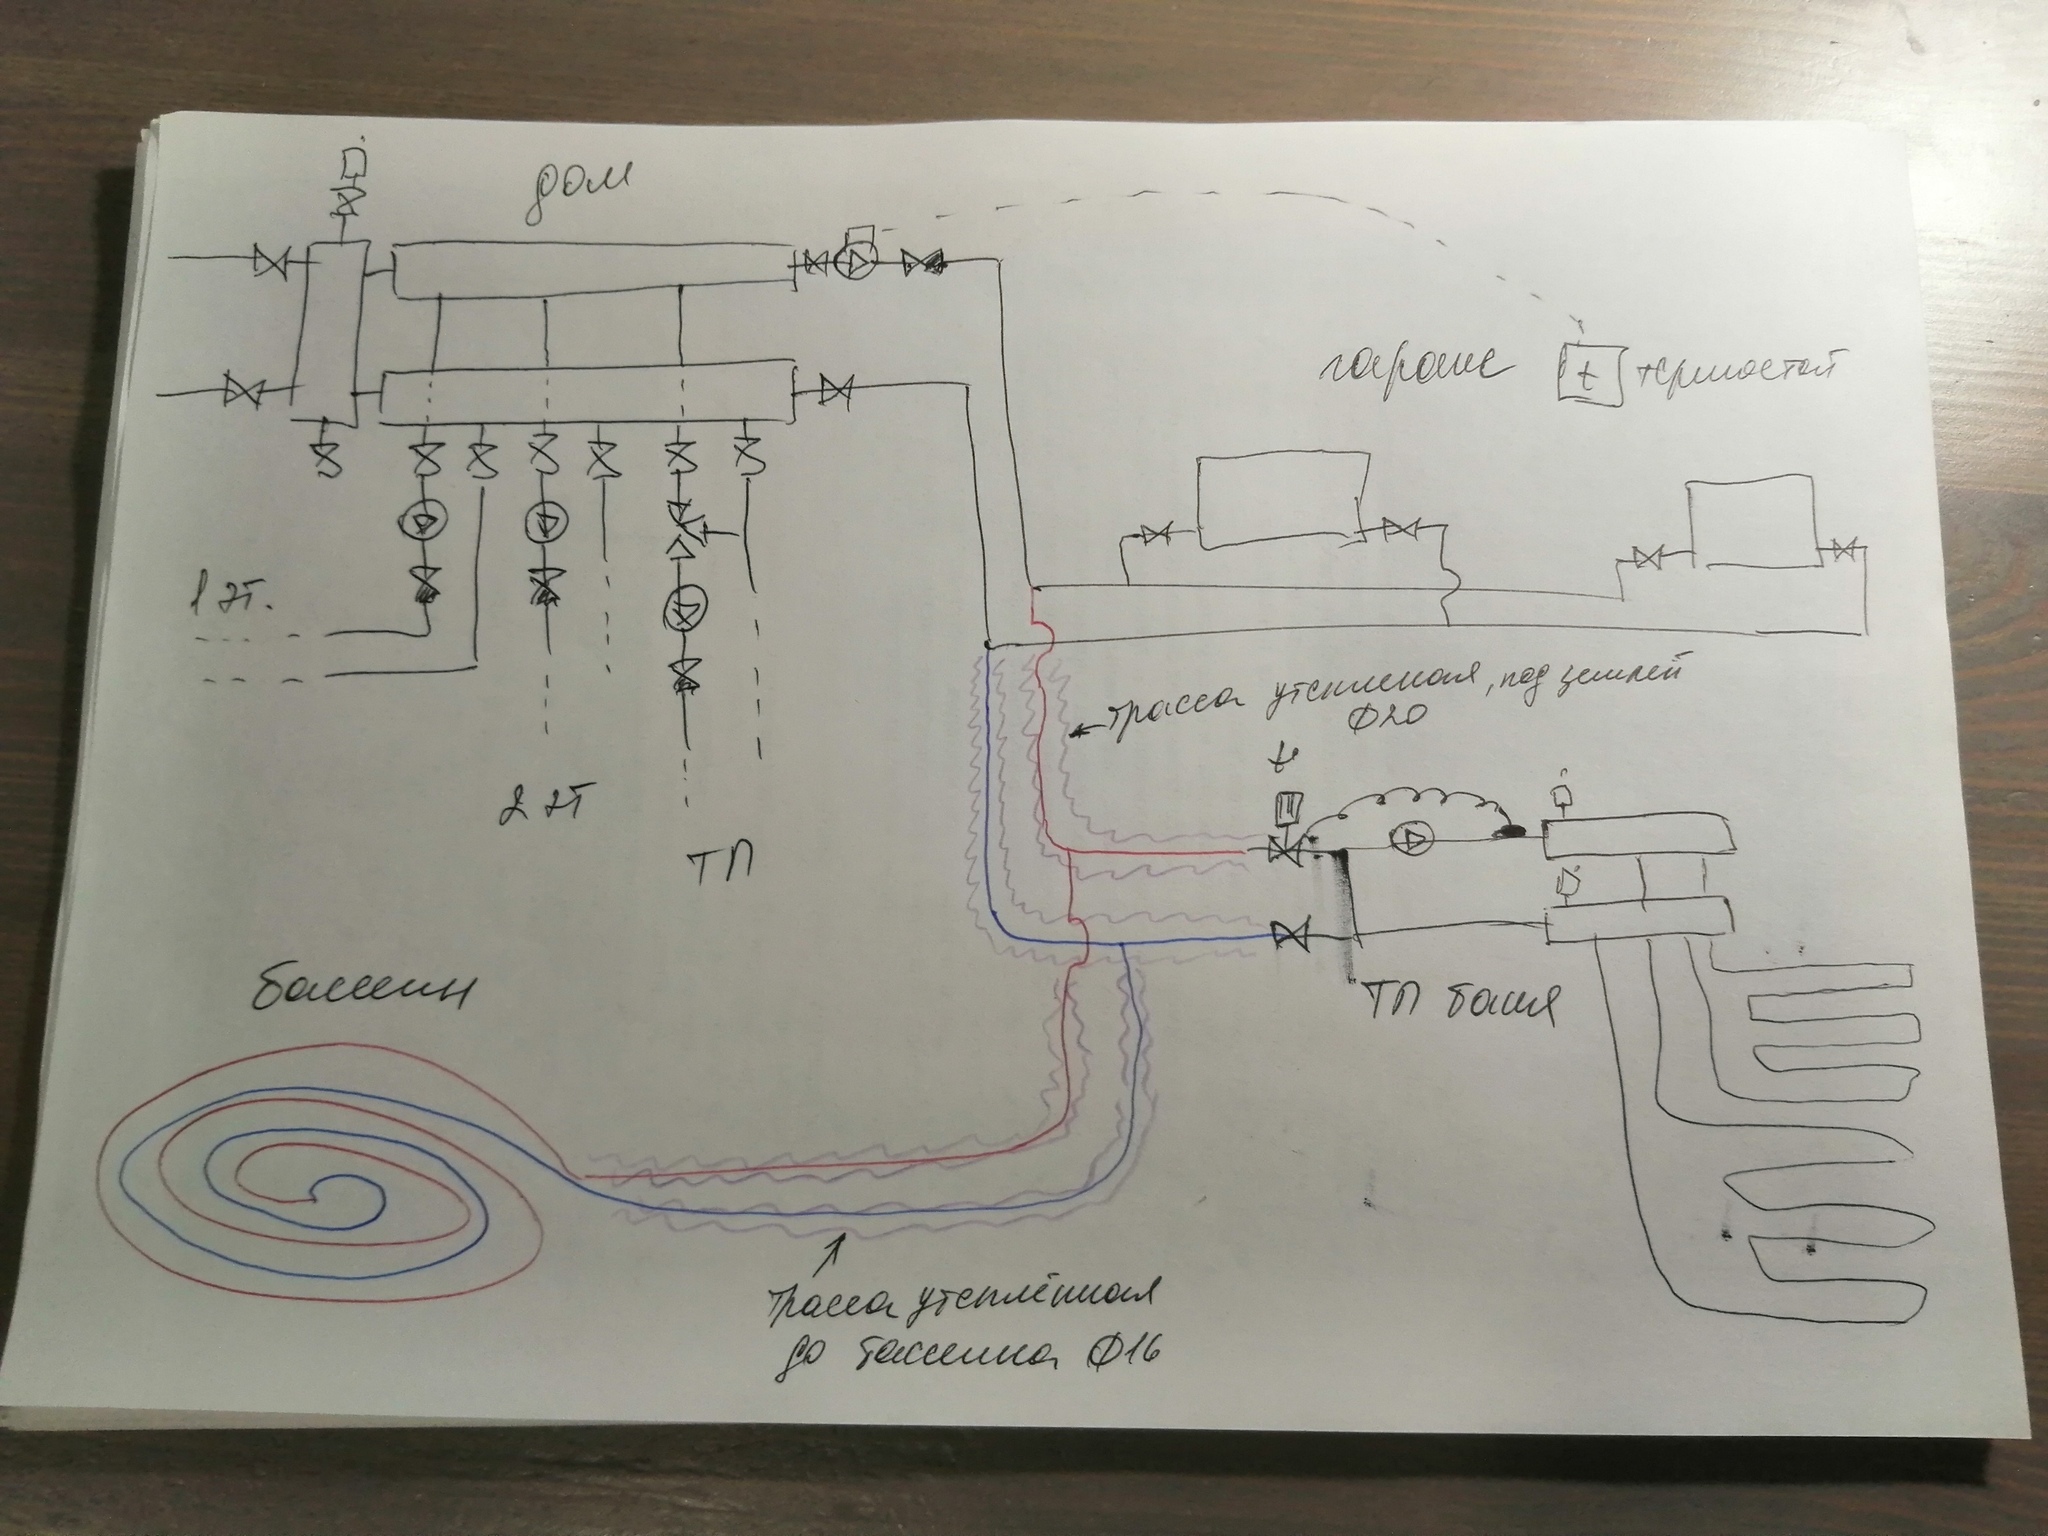 дом
гараж
t термостат
1 эт.
трасса утепленная, под землей
Ф20
t°
2 эт
ТП
бассейн
ТП баня
трасса утеплённая
до бассейна Ф16